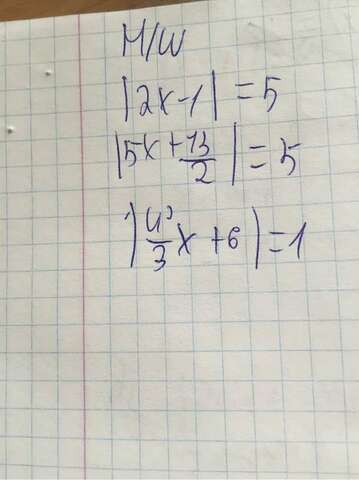 H/W
|2x-1|=5
|5x+13/2|=5
|4/3x+6|=1